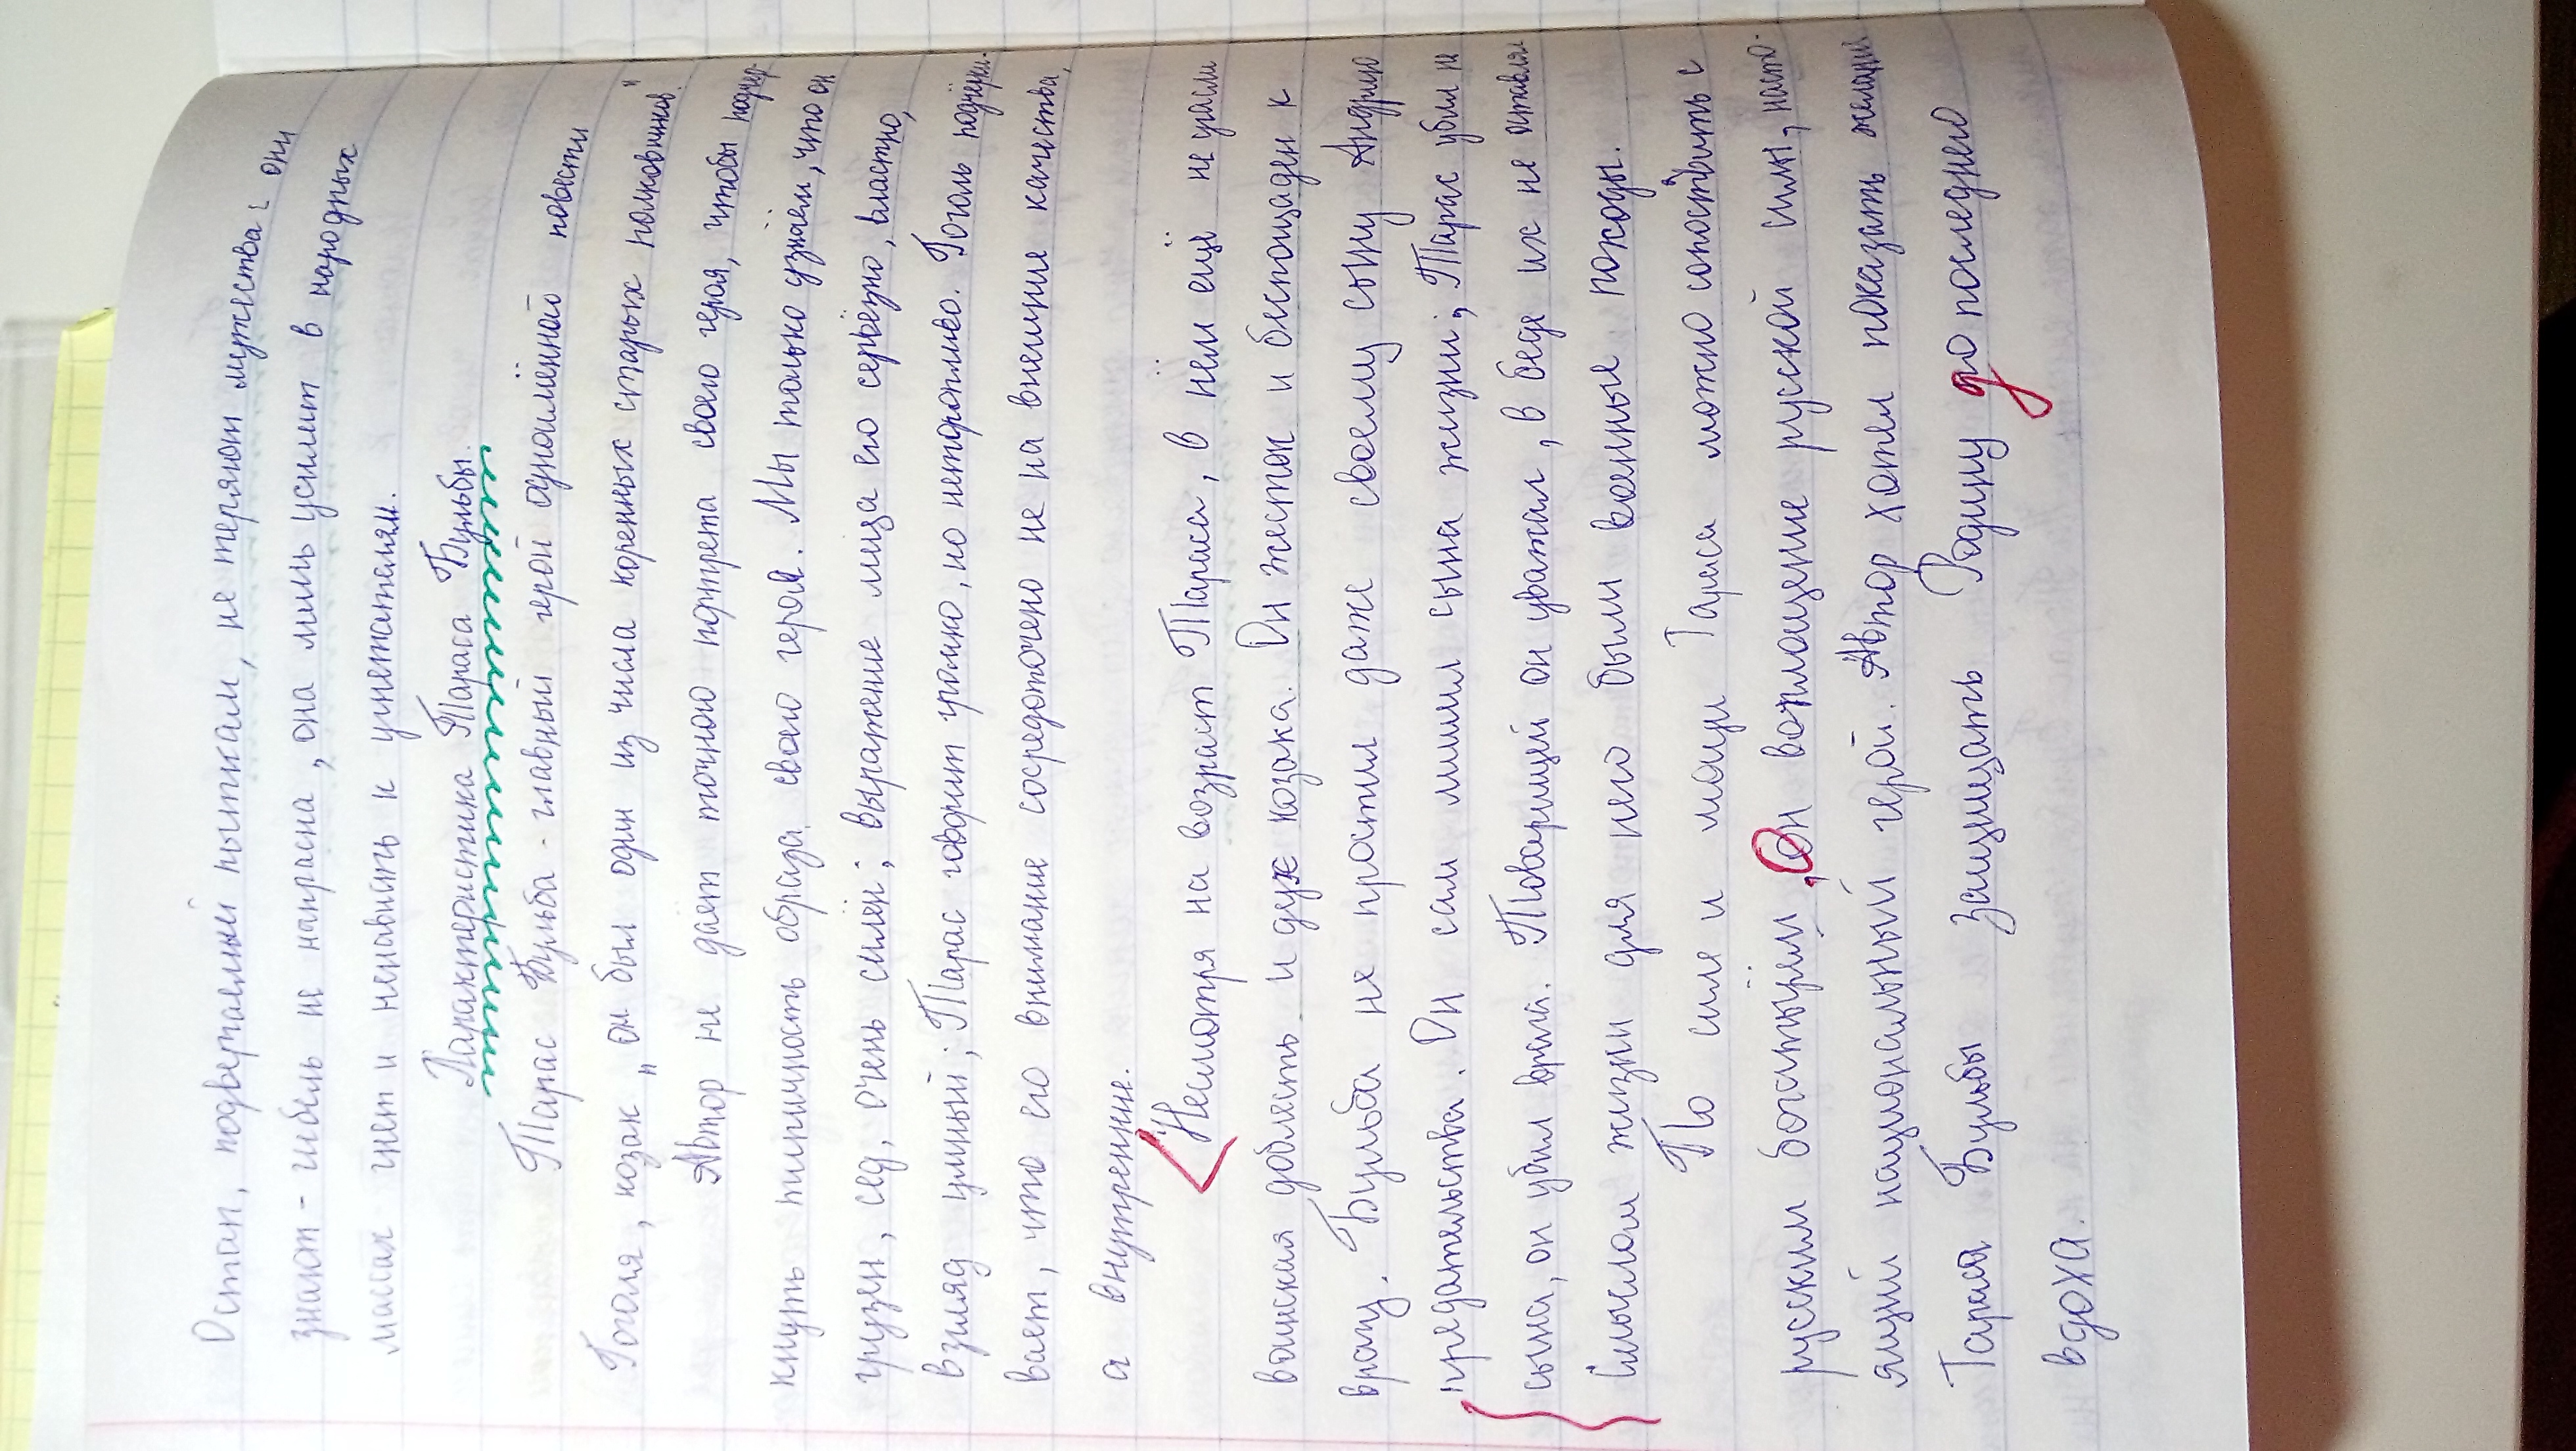 Остап, подвергаемый пыткам, не теряют мужества: они
знают - гибель не напрасна, она лишь усилит в народных
массах гнет и ненависть к угнетателям.
Характеристика Тараса Бульбы.
Тарас Бульба - главный герой одноимённой повести
Гоголя, козак „он был один из числа коренных старых полковников."
Автор не даёт точного портрета своего героя, чтобы подчер-
кнуть типичность образа своего героя. Мы только узнаём, что он
грузен, сед, очень силён; выражение лица его серьёзно, властно,
взгляд умный; Тарас говорит громко, но неторопливо. Гоголь подчёрки-
вает, что его внимание сосредоточено не на внешние качества,
а внутренние.
Несмотря на возраст Тараса, в нём ещё не угасли
воинская доблесть и дух козака. Он жесток и беспощаден к
врагу. Бульба не простил даже своему сыну Андрию
предательства. Он сам лишил сына жизни; Тарас убил не
сына, он убил врага. Товарищей он уважал, в беде их не оставлял
Смыслом жизни для него были военные походы.
По силе и мощи Тараса можно сопоставить с
русским богатырём, Он воплощение русской силы, насто-
ящий национальный герой. Автор хотел показать желание
Тараса Бульбы защищать Родину до последнего
вдоха.